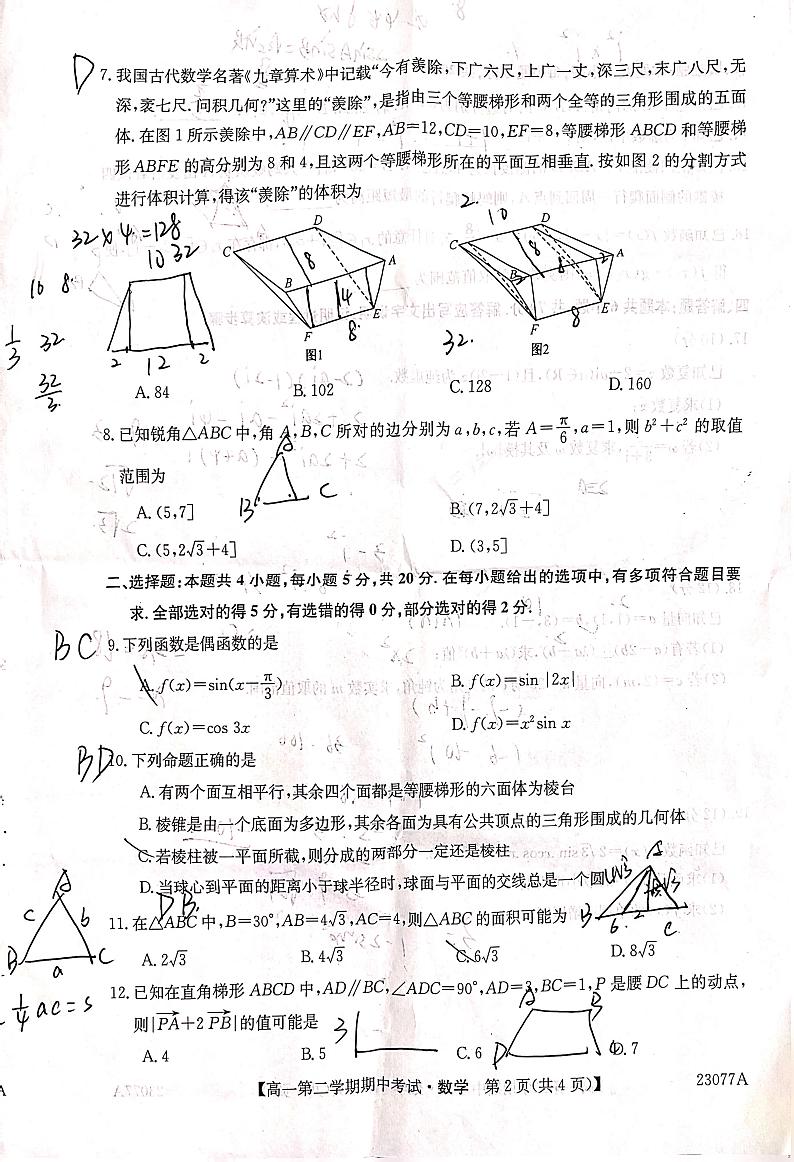 D 7. 我国古代数学名著《九章算术》中记载“今有羡除,下广六尺,上广一丈,深三尺,末广八尺,无
深,袤七尺.问积几何?”这里的“羡除”,是指由三个等腰梯形和两个全等的三角形围成的五面
体.在图1所示羡除中,AB∥CD∥EF,AB=12,CD=10,EF=8,等腰梯形ABCD和等腰梯
形ABFE的高分别为8和4,且这两个等腰梯形所在的平面互相垂直.按如图2的分割方式
进行体积计算,得该“羡除”的体积为
32×4=128
10 32
10 8
1/3 32
32/3
2 12 2
C D B A F E 8 4 8
图1
2. 10
C D B A F E 8 8 8
32.
图2
A. 84 B. 102 C. 128 D. 160
8. 已知锐角△ABC中,角A,B,C所对的边分别为a,b,c,若A=π/6,a=1,则b²+c²的取值
范围为
A B C
A. (5,7] B. (7,2√3+4]
C. (5,2√3+4] D. (3,5]
二、选择题:本题共4小题,每小题5分,共20分.在每小题给出的选项中,有多项符合题目要
求.全部选对的得5分,有选错的得0分,部分选对的得2分.
BC 9. 下列函数是偶函数的是
A. f(x)=sin(x-π/3) B. f(x)=sin |2x|
C. f(x)=cos 3x D. f(x)=x²sin x
BD 10. 下列命题正确的是
A. 有两个面互相平行,其余四个面都是等腰梯形的六面体为棱台
B. 棱锥是由一个底面为多边形,其余各面为具有公共顶点的三角形围成的几何体
C. 若棱柱被一平面所截,则分成的两部分一定还是棱柱
D. 当球心到平面的距离小于球半径时,球面与平面的交线总是一个圆
DB.
11. 在△ABC中,B=30°,AB=4√3,AC=4,则△ABC的面积可能为
A B C c b a
A B C 6 2
A. 2√3 B. 4√3 C. 6√3 D. 8√3
1/4 ac=s
12. 已知在直角梯形ABCD中,AD∥BC,∠ADC=90°,AD=3,BC=1,P是腰DC上的动点,
则|PA+2PB|的值可能是
3
A B D
A. 4 B. 5 C. 6 D. 7
【高一第二学期期中考试·数学 第2页(共4页)】 23077A